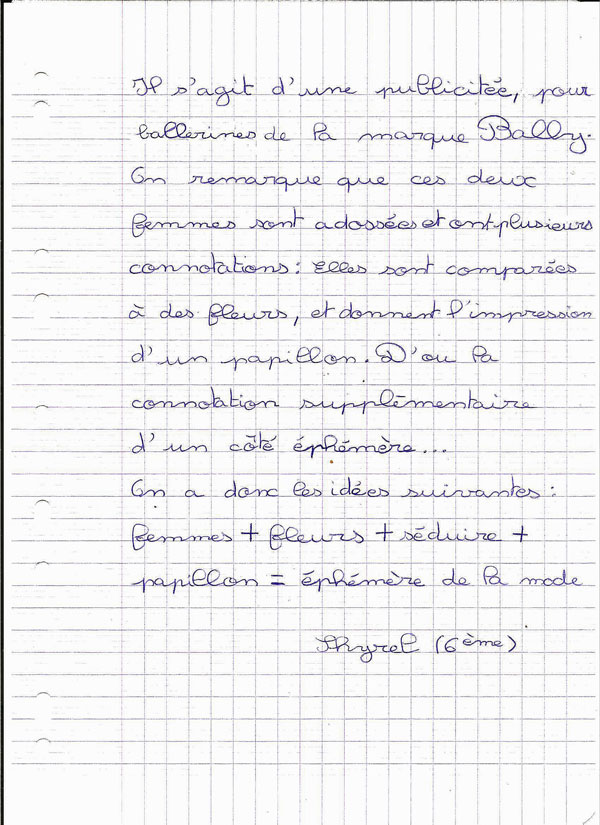 Il s'agit d'une publicitée, pour
ballerines de la marque Bally.
On remarque que ces deux
femmes sont adossées et ont plusieurs
connotations : Elles sont comparées
à des fleurs, et donnent l'impression
d'un papillon. D'ou la
connotation supplémentaire
d'un côté éphémère...
On a donc les idées suivantes :
femmes + fleurs + séduire +
papillon = éphémère de la mode
Thyrel (6ème)